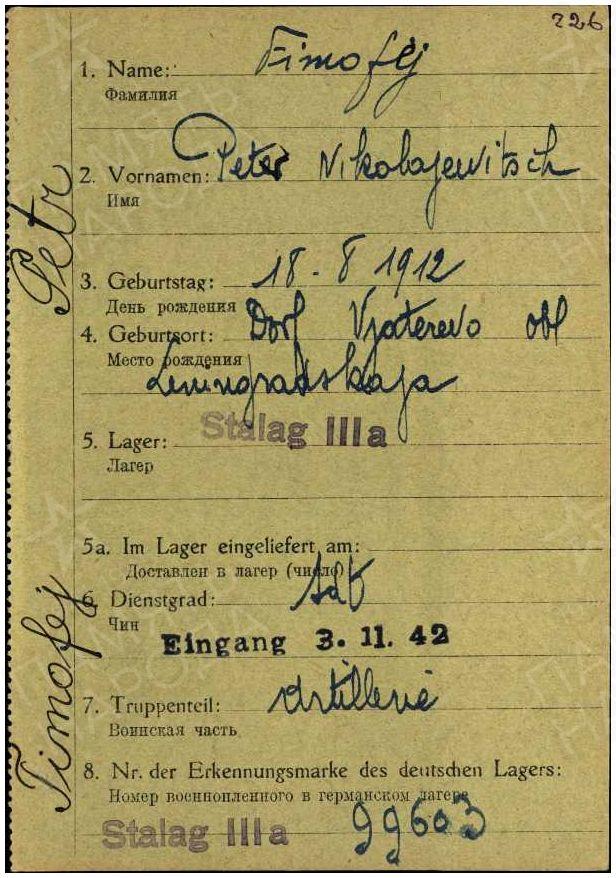 226
1. Name: Timofej
Фамилия
2. Vornamen: Peter Nikolajewitsch
Имя
3. Geburtstag: 18 - 8 1912
День рождения
4. Geburtsort: Dorf Vjaterevo obl
Место рождения
Leningradskaja
Stalag IIIa
5. Lager:
Лагер
5a. Im Lager eingeliefert am:
Доставлен в лагер (число)
6. Dienstgrad:
Чин
Eingang 3. 11. 42
7. Truppenteil: Artillerie
Воинская часть
8. Nr. der Erkennungsmarke des deutschen Lagers:
Номер военнопленного в германском лагере
Stalag IIIa 99603
Timofej Petr